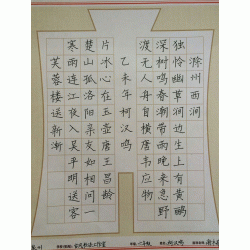 滁州西涧
独怜幽草涧边生上有黄鹂
深树鸣春潮带雨晚来急野
渡无人舟自横唐韦应物
芙蓉楼送新渐
寒雨连江夜入吴平明送客
楚山孤洛阳亲友如相问一
片冰心在玉壶唐王昌龄
乙未年柯汉鸣